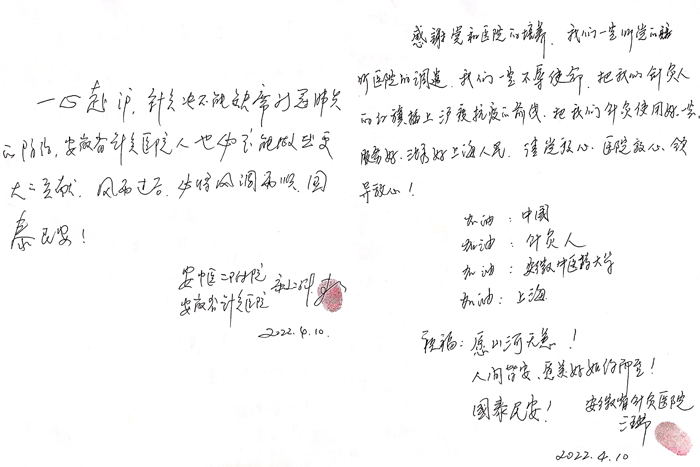 一心赴沪，针灸决不能缺席新冠肺炎
的阶阶，安徽省针灸医院人也必定能做出更
大二贡献，风雨过后，必将风调雨顺，国
泰民安！
安中医二附院
安徽省针灸医院
2022.4.10.
感谢党和医院的培养，我们一定听党的话
听医院的调遣，我们一定不辱使命，把我们针灸人
的红旗插上沪疫抗疫的前线，把我们针灸使用好一点，
服务好，治好上海人民，请党放心，医院放心，领
导放心！
加油：中国
加油：针灸人
加油：安徽中医药大学
加油：上海
祝福：愿山河无恙！
人间皆安，愿美好如约而至！
国泰民安！
安徽省针灸医院
2022.4.10